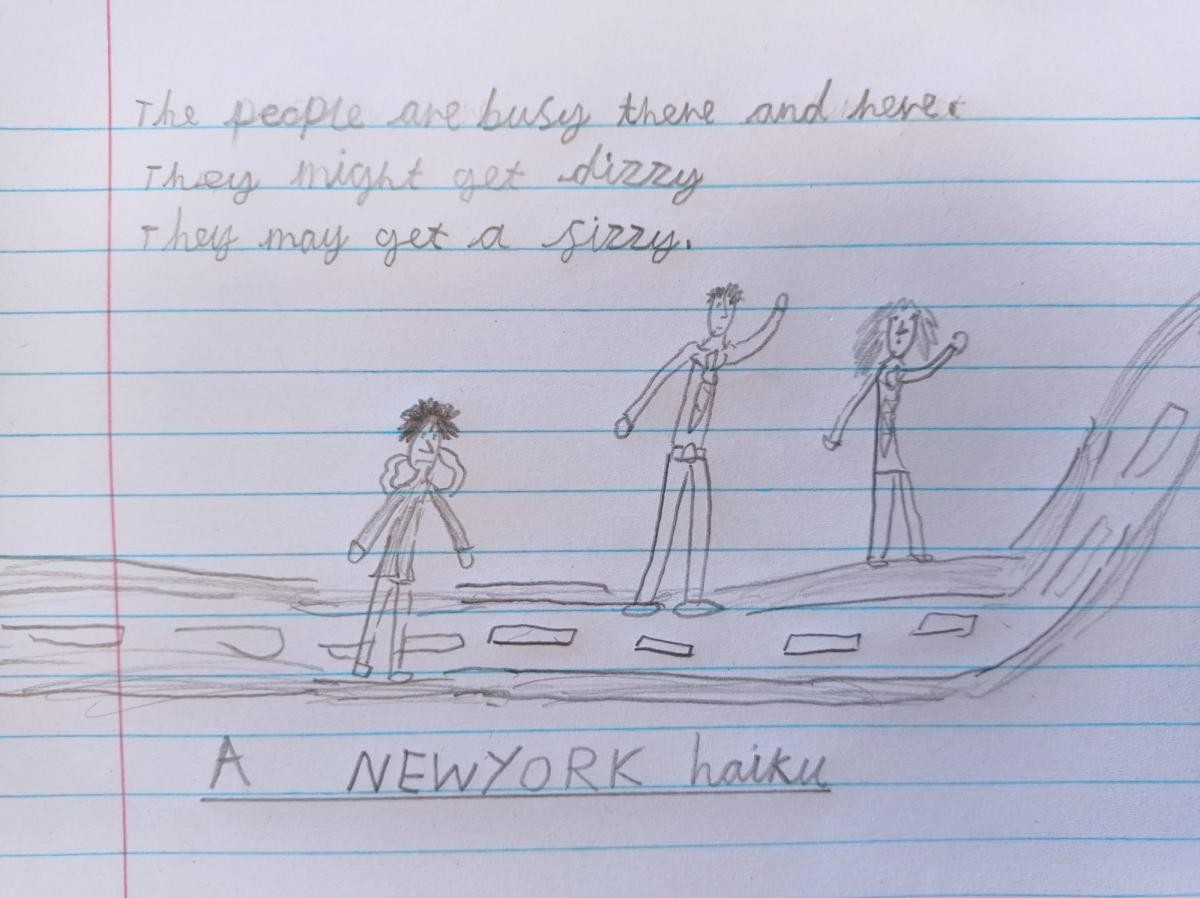 The people are busy there and here.
They might get dizzy
They may get a fizzy.
A NEWYORK haiku